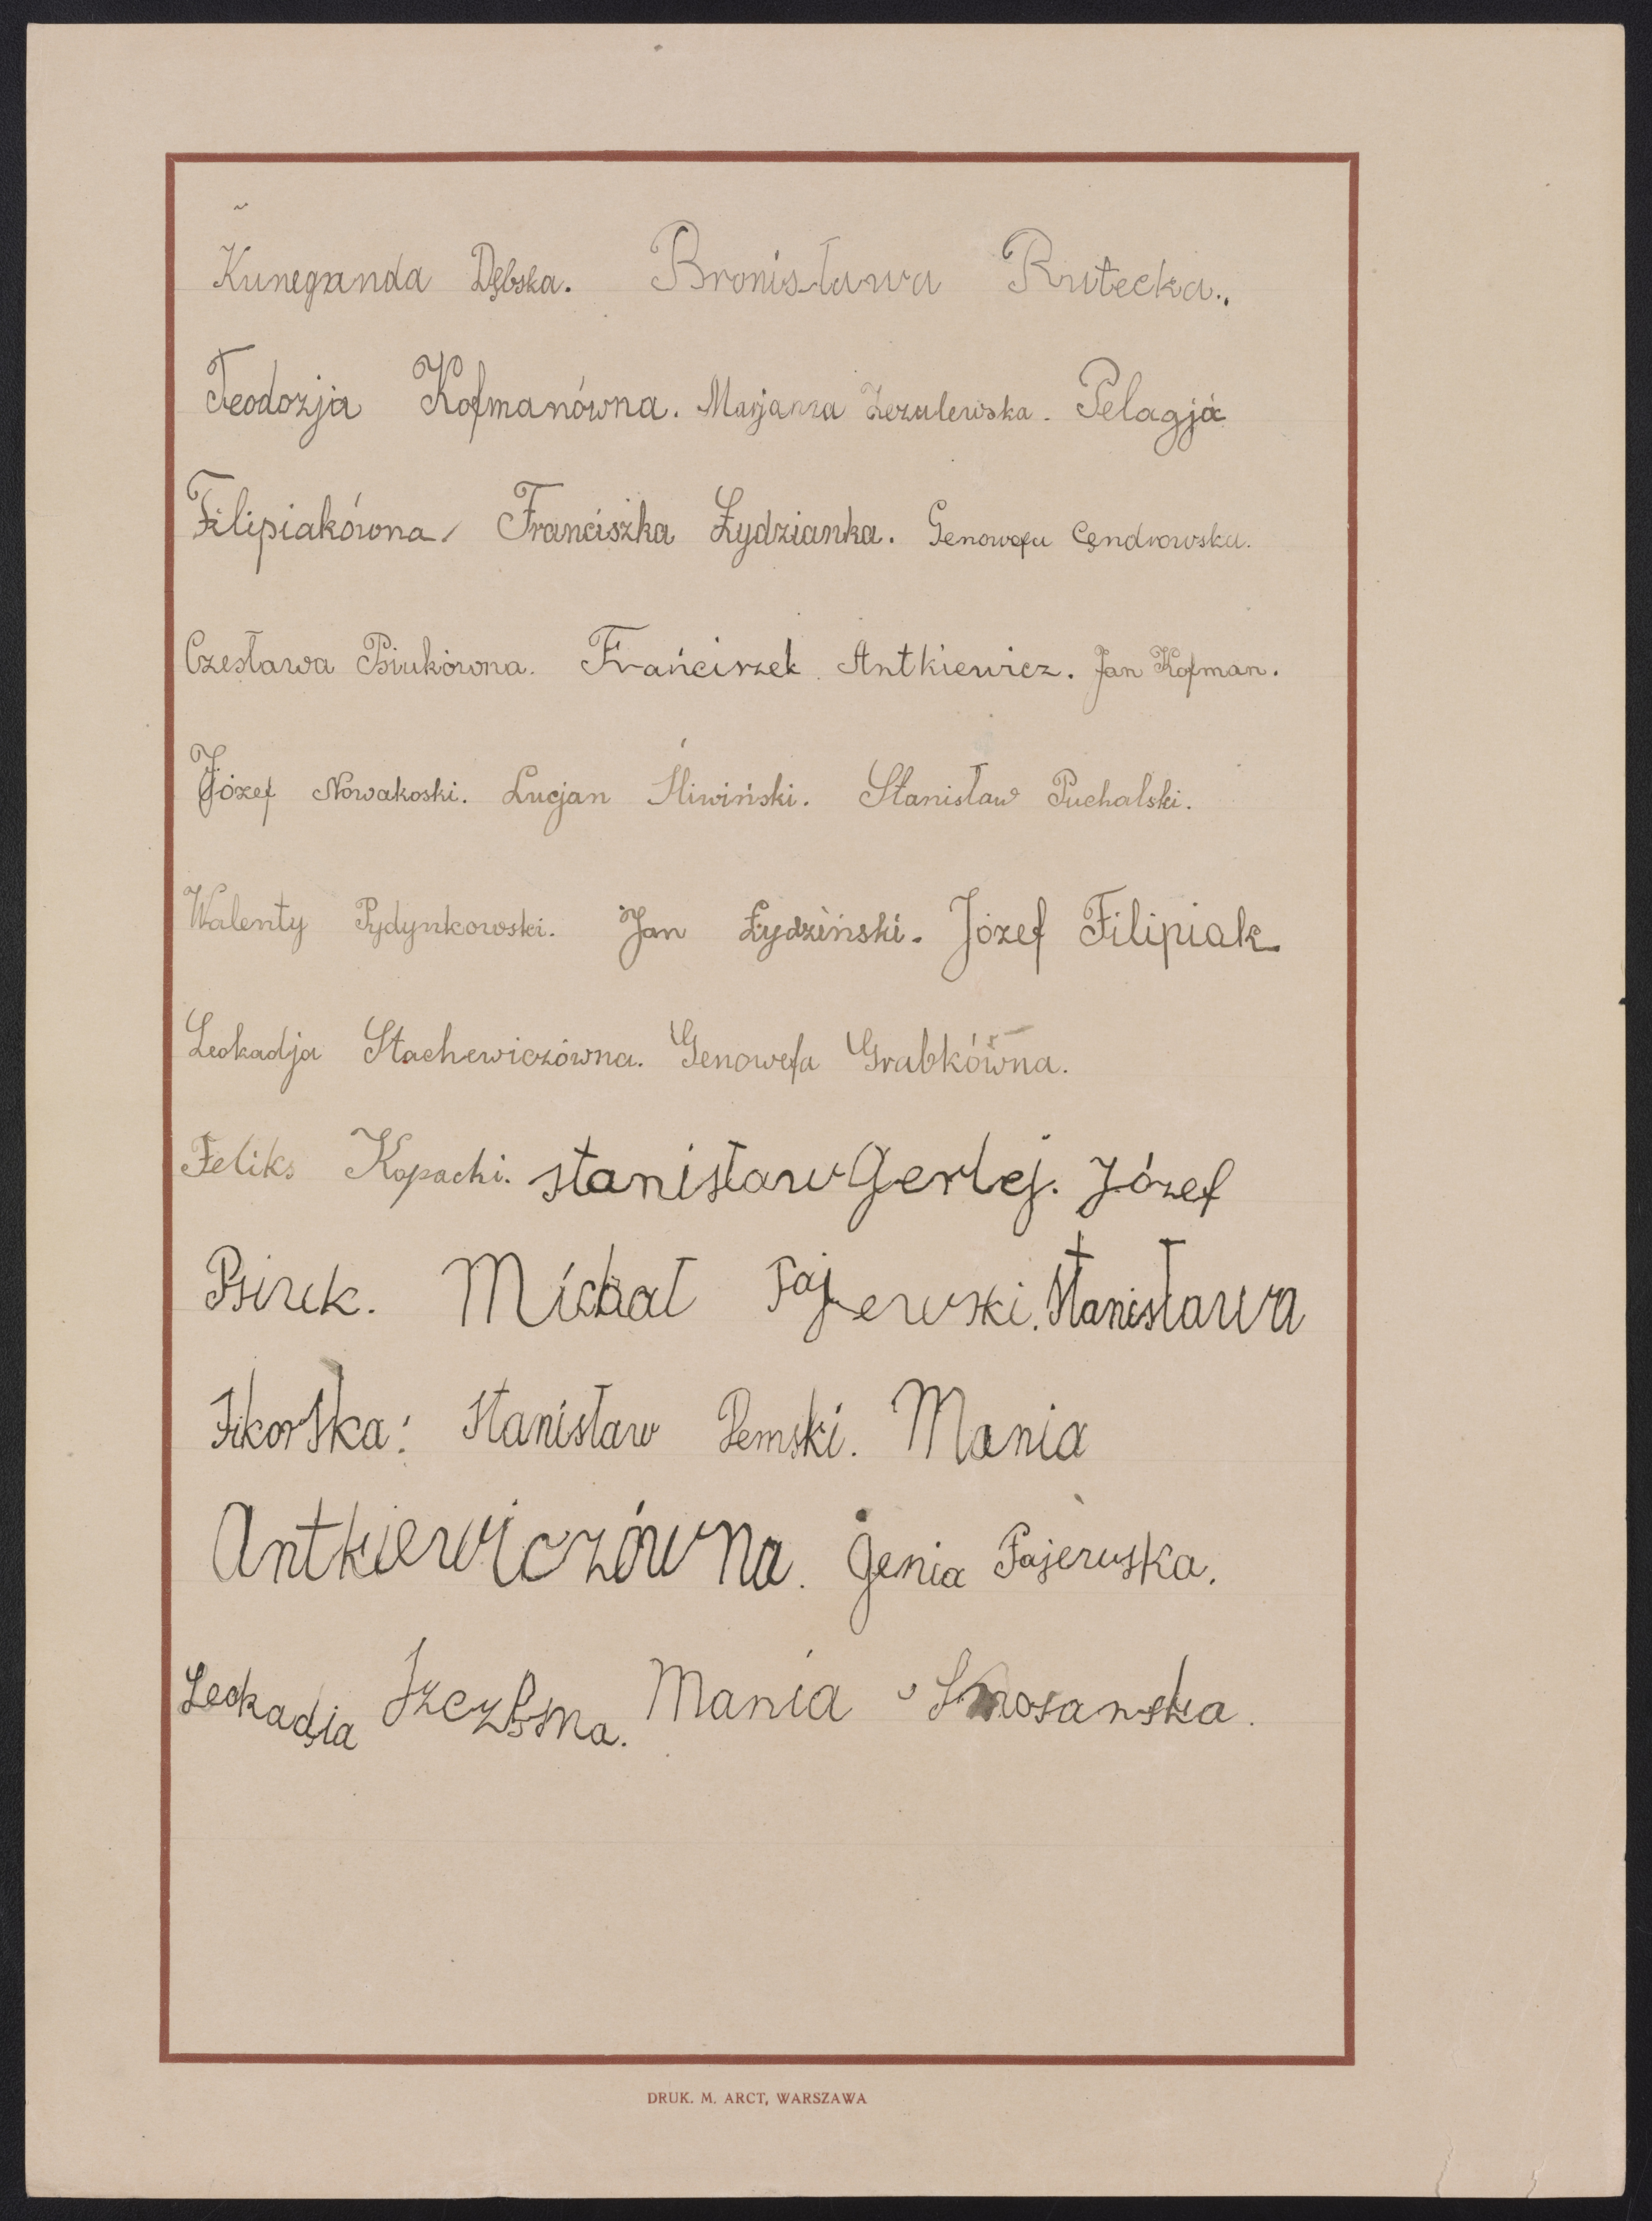 Kuneganda Dębska. Bronisława Rutecka.
Teodozja Kofmanówna. Marjanna Pelagja
Filipiakówna Franciszka Łydzianka. Genowefa Cendrowska.
Czesława Psiukówna. Frańciszek Antkiewicz. Jan Kofman.
Józef Nowakoski. Lucjan Śliwiński. Stanisław Puchalski.
Walenty Pydynkowski. Jan Łydziński. Józef Filipiak
Leokadja Stachewiczówna. Genowefa Grabkówna.
Feliks Kopacki. Stanisław Gerlej. Józef
Psiuk. Michał Fajerwski. Stanisława
Sikorska: Stanisław Pemski. Mania
Antkiewiczówna. Genia Fajerwska.
Leokadia Szczęsna. Mania
DRUK. M. ARCT, WARSZAWA